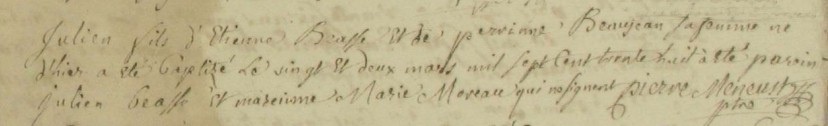 Julien fils d'Etienne Beasse et de perrinne Beaujean sa femme ne
d'hier a eté baptizé le vingt et deux mars mil sept cent trente huit a eté parain
julien beasse et mareinne Marie Moreau qui ne signent pierre Meneust
ptre